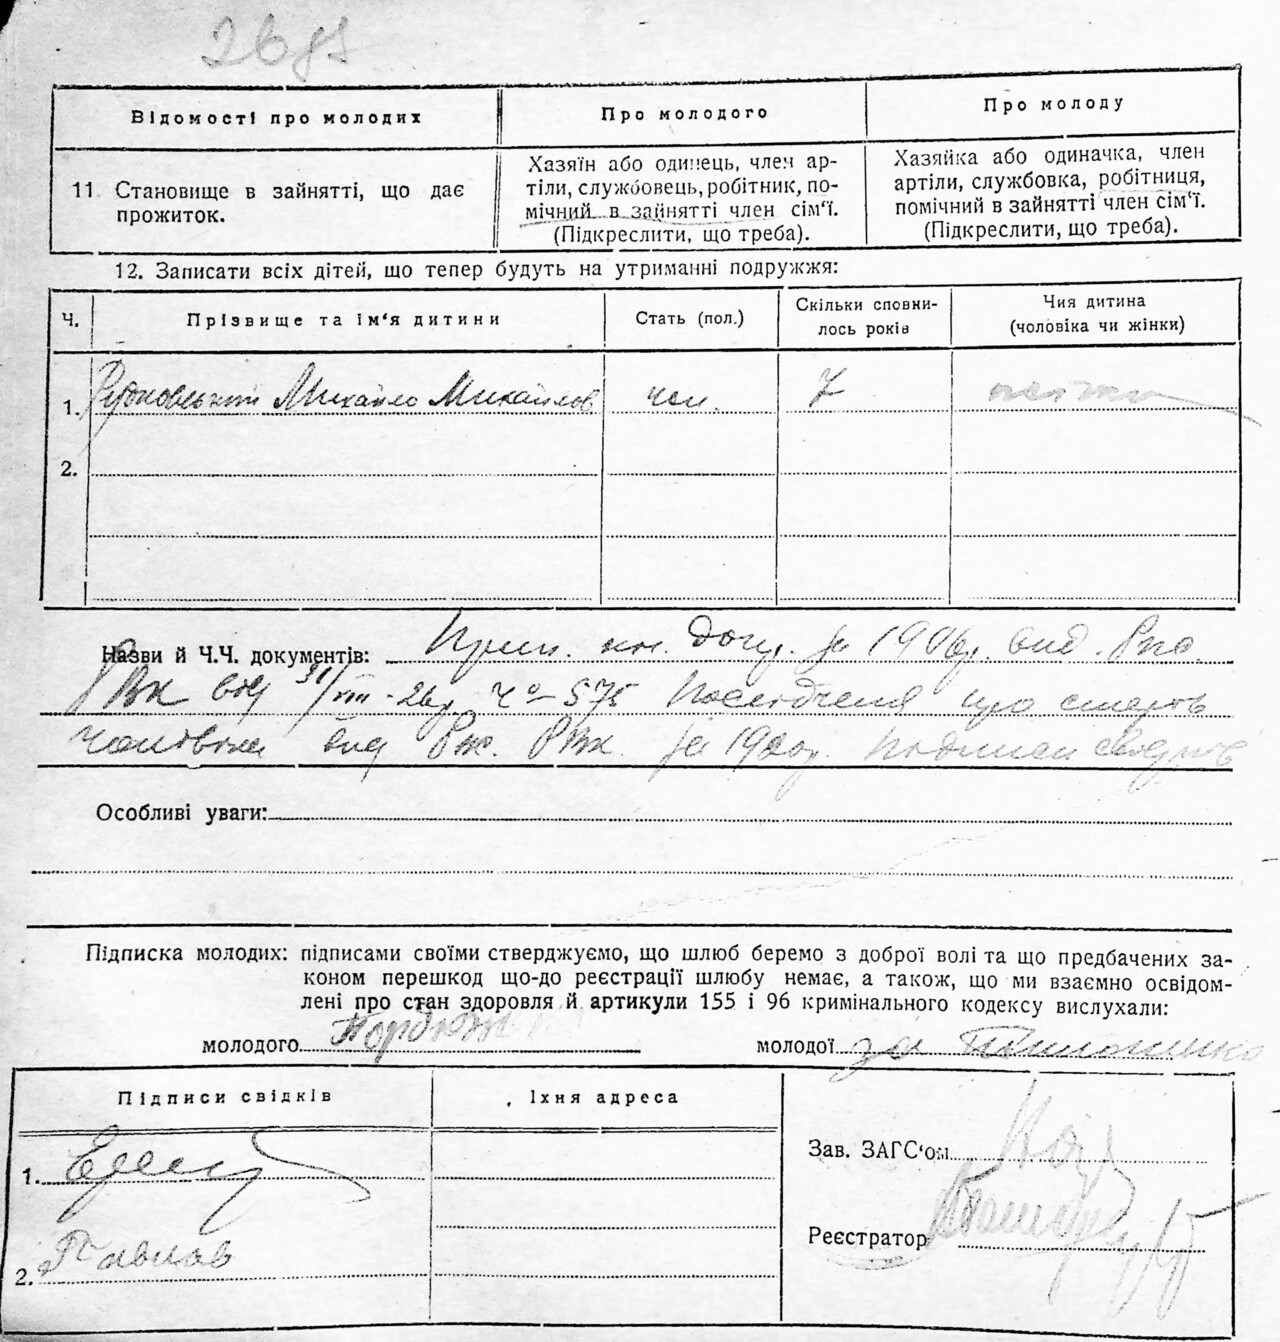 Відомості про молодих
Про молодого
Про молоду
11 Становище в зайнятті, що дає
прожиток.
Хазяїн або одинець, член ар-
тіли, службовець, робітник, по-
мічний в зайнятті член сім'ї.
(Підкреслити, що треба).
Хазяйка або одиначка, член
артіли, службовка, робітниця,
помічний в зайнятті член сім'ї.
(Підкреслити, що треба).
12. Записати всіх дітей, що тепер будуть на утриманні подружжя:
Ч.
Прізвище та ім'я дитини
Стать (пол.)
Скільки сповни-
лось років
Чия дитина
(чоловіка чи жінки)
1. Михайло Михайлов чол. 7
2.
Назви й Ч.Ч. документів: 1906р. вид.
РВК від 31/VIII-26р. Ч° 575 про смерть
чоловіка від РВК. за 1920р.
Особливі уваги:
Підписка молодих: підписами своїми стверджуємо, що шлюб беремо з доброї волі та що предбачених за-
коном перешкод що-до реєстрації шлюбу немає, а також, що ми взаємно освідом-
лені про стан здоровля й артикули 155 і 96 кримінального кодексу вислухали:
молодого
молодої за
Підписи свідків
Їхня адреса
1.
2. Павлов
Зав. ЗАГС'ом
Реєстратор